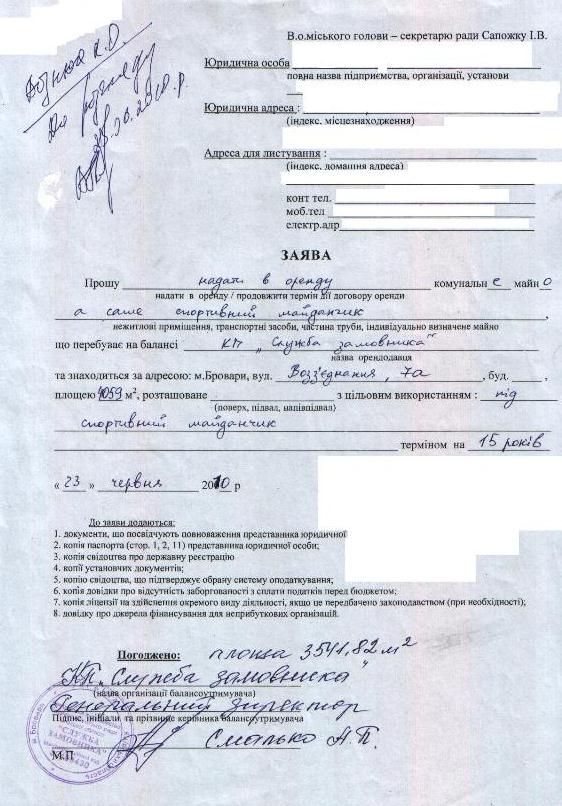 До розгляду
В.о.міського голови – секретарю ради Сапожку І.В.
Юридична особа
повна назва підприємства, організації, установи
Юридична адреса :
(індекс, місцезнаходження)
Адреса для листування :
(індекс, домашня адреса)
конт тел.
моб.тел
електр.адр
ЗАЯВА
Прошу надати в оренду комунальне майно
надати в оренду / продовжити термін дії договору оренди
а саме спортивний майданчик ,
нежитлові приміщення, транспортні засоби, частина труби, індивідуально визначене майно
що перебуває на балансі КП „Служба замовника"
назва орендодавця
та знаходиться за адресою: м.Бровари, вул. Возз'єднання, 7а , буд. ,
площею 4059 м², розташоване з цільовим використанням : під
(поверх, підвал, напівпідвал)
спортивний майданчик
терміном на 15 років
« 23 » червня 2010 р
До заяви додаються:
1. документи, що посвідчують повноваження представника юридичної
2. копія паспорта (стор. 1, 2, 11) представника юридичної особи;
3. копія свідоцтва про державну реєстрацію
4. копії установчих документів;
5. копію свідоцтва, що підтверджує обрану систему оподаткування;
6. копія довідки про відсутність заборгованості з сплати податків перед бюджетом;
7. копія ліцензії на здійснення окремого виду діяльності, якщо це передбачено законодавством (при необхідності);
8. довідку про джерела фінансування для неприбуткових організацій.
Погоджено: площа 3541,82 м²
КП „Служба замовника"
(назва організації балансоутримувача)
Генеральний директор
Підпис, ініціали та прізвище керівника балансоутримувача
Смалько А.П.
М.П
"СЛУЖБА
ЗАМОВНИКА"